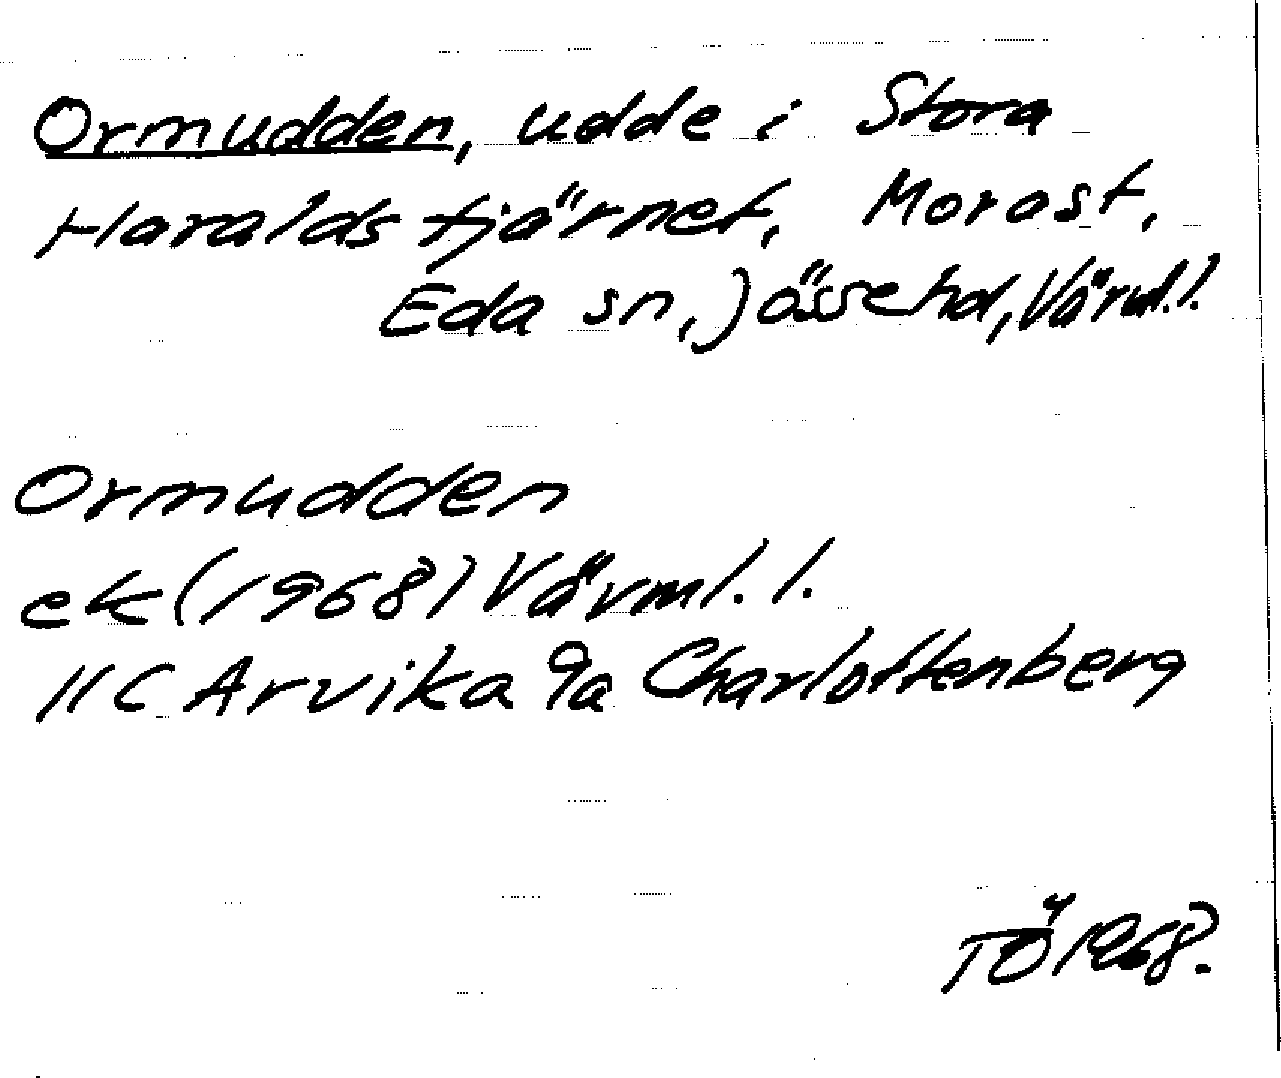 Ormudden, udde i Stora
Haraldstjärnet, Morast,
Eda sn, Jösse hd, Värml. l.
Ormudden
ek (1968) Värml. l.
11C Arvika 9a Charlottenberg
TÖ 1968.